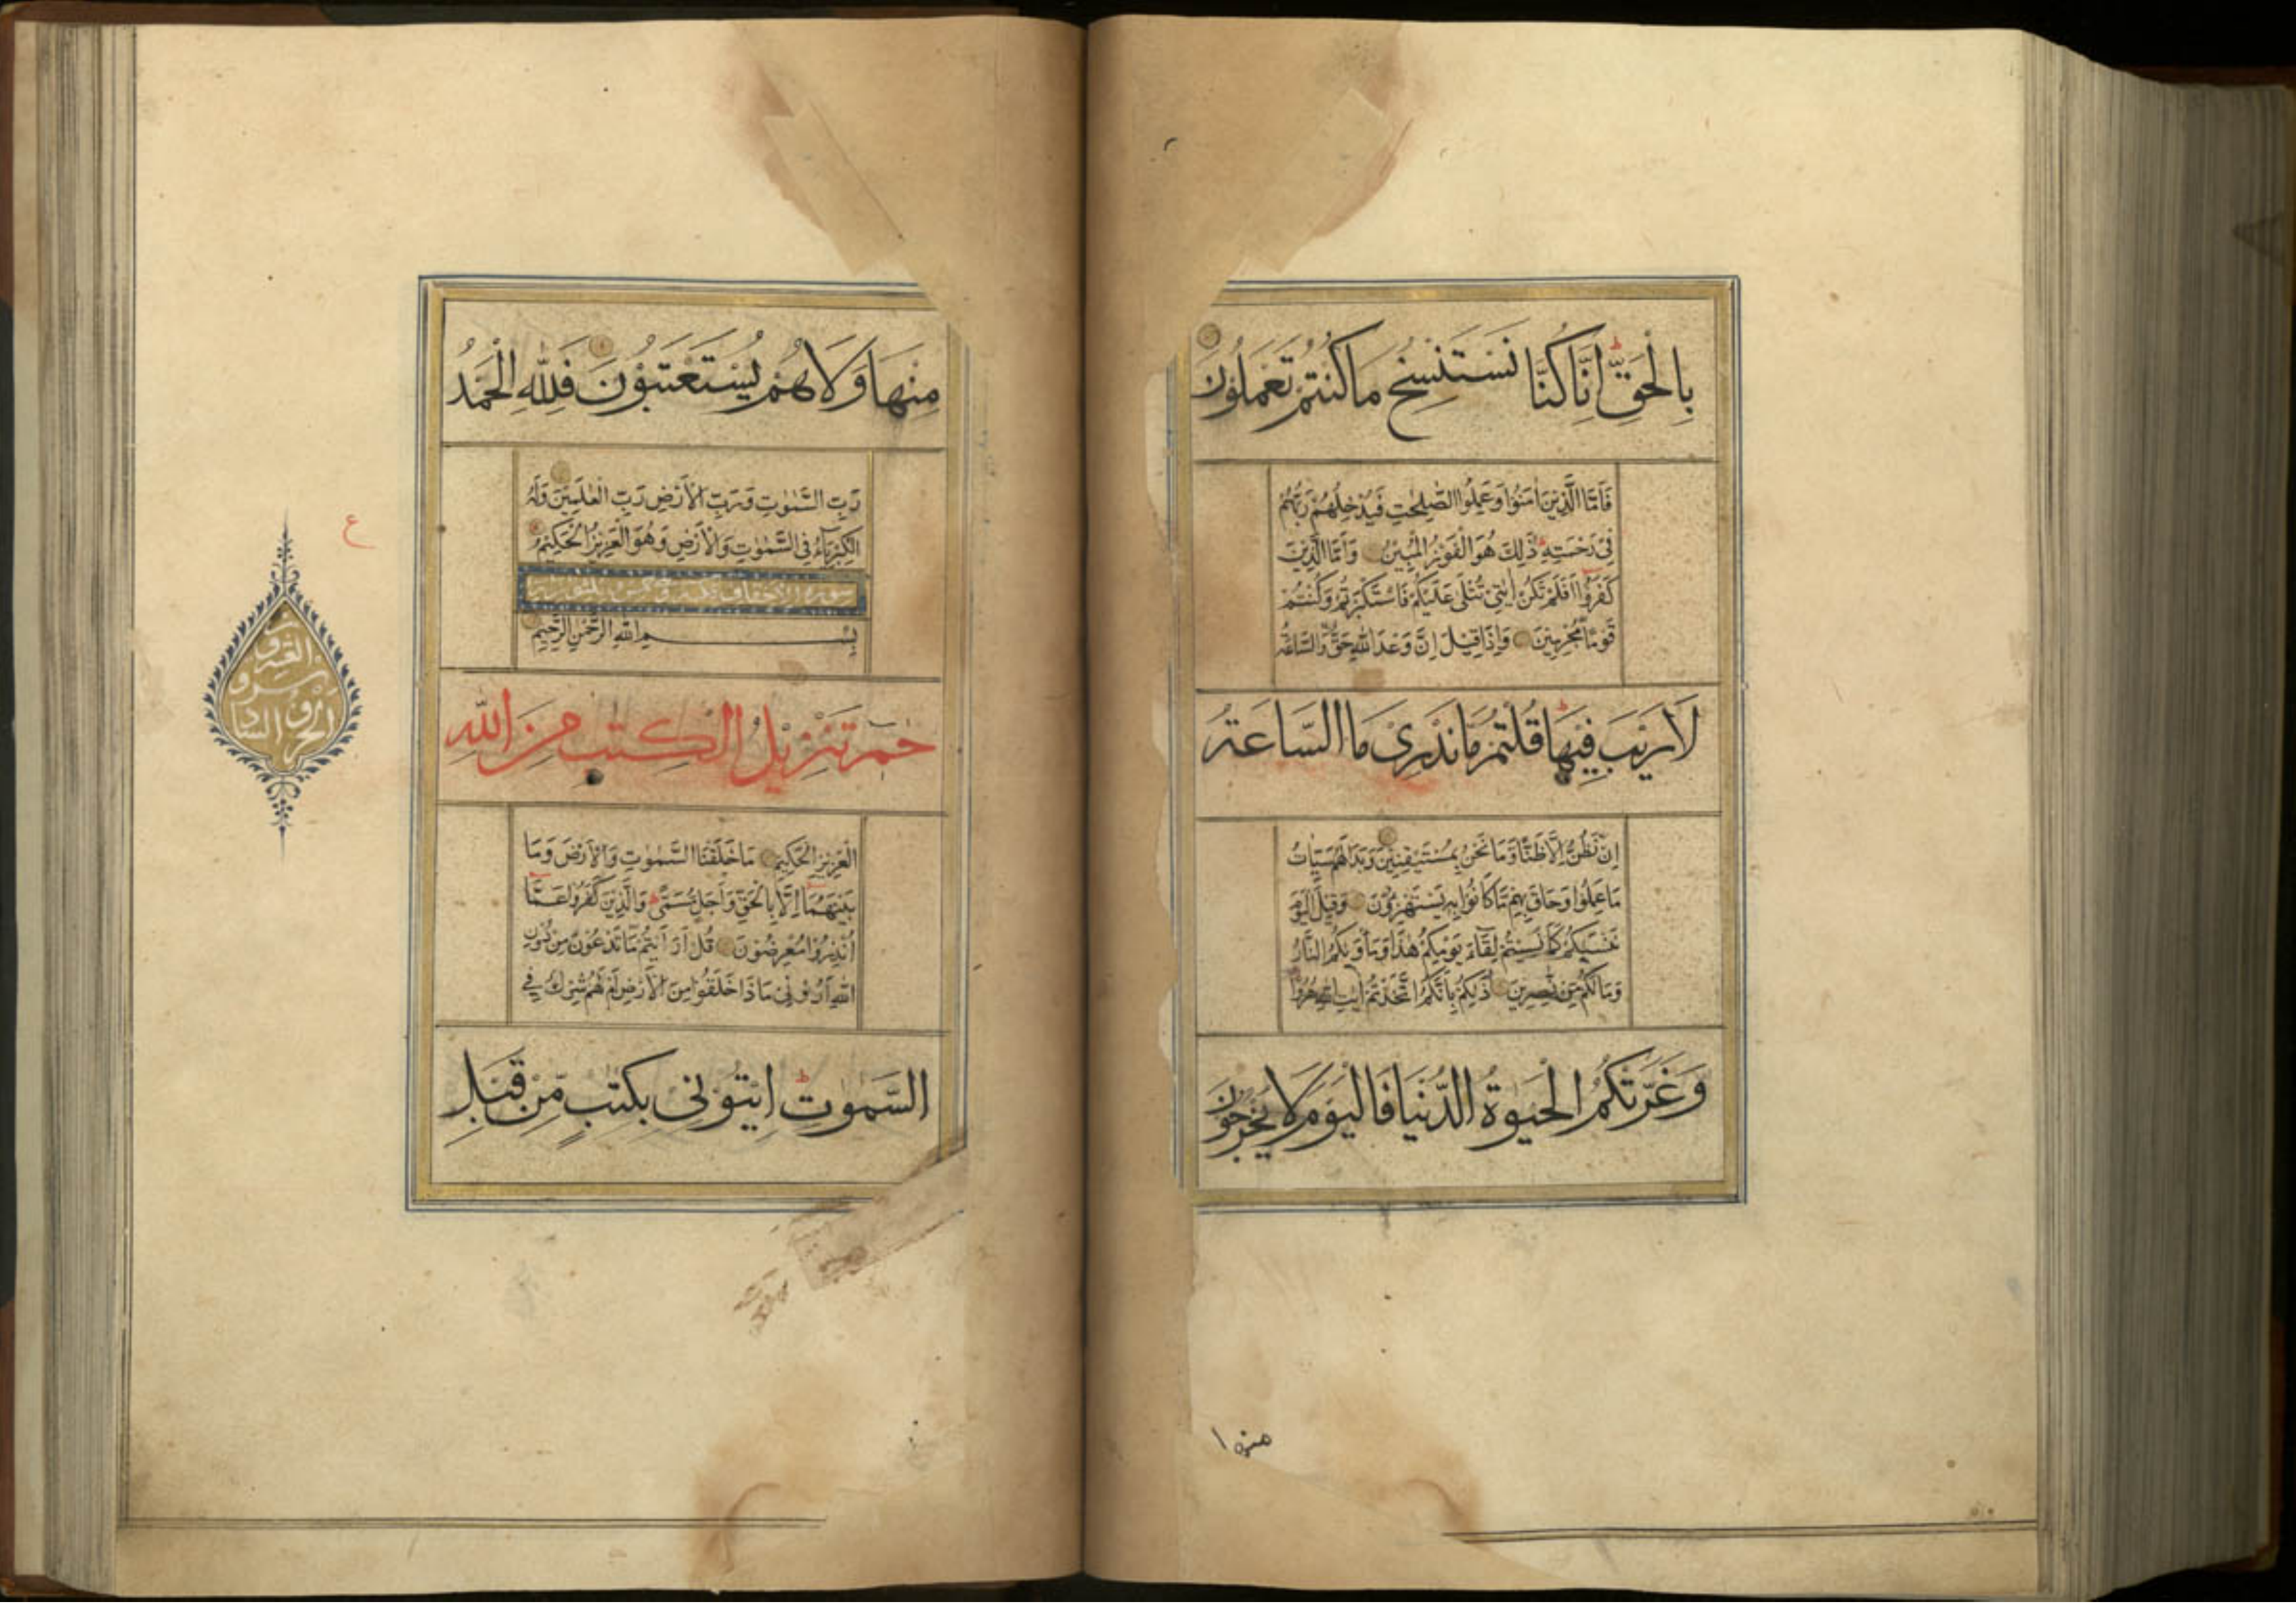 بِالْحَقِّ اِنَّا كُنَّا نَسْتَنْسِخُ مَا كُنْتُمْ تَعْمَلُوْنَ
فَاَمَّا الَّذِيْنَ اٰمَنُوْا وَعَمِلُوا الصّٰلِحٰتِ فَيُدْخِلُهُمْ رَبُّهُمْ
فِيْ رَحْمَتِهٖ ذٰلِكَ هُوَ الْفَوْزُ الْمُبِيْنُ وَاَمَّا الَّذِيْنَ
كَفَرُوْا اَفَلَمْ تَكُنْ اٰيٰتِيْ تُتْلٰى عَلَيْكُمْ فَاسْتَكْبَرْتُمْ وَكُنْتُمْ
قَوْمًا مُّجْرِمِيْنَ وَاِذَا قِيْلَ اِنَّ وَعْدَ اللّٰهِ حَقٌّ وَّالسَّاعَةُ
لَا رَيْبَ فِيْهَا قُلْتُمْ مَّا نَدْرِيْ مَا السَّاعَةُ
اِنْ نَّظُنُّ اِلَّا ظَنًّا وَّمَا نَحْنُ بِمُسْتَيْقِنِيْنَ وَبَدَا لَهُمْ سَيِّاٰتُ
مَا عَمِلُوْا وَحَاقَ بِهِمْ مَّا كَانُوْا بِهٖ يَسْتَهْزِءُوْنَ وَقِيْلَ الْيَوْمَ
نَنْسٰىكُمْ كَمَا نَسِيْتُمْ لِقَآءَ يَوْمِكُمْ هٰذَا وَمَأْوٰىكُمُ النَّارُ
وَمَا لَكُمْ مِّنْ نّٰصِرِيْنَ ذٰلِكُمْ بِاَنَّكُمُ اتَّخَذْتُمْ اٰيٰتِ اللّٰهِ هُزُوًا
وَّغَرَّتْكُمُ الْحَيٰوةُ الدُّنْيَا فَالْيَوْمَ لَا يُخْرَجُوْنَ
منها
مِنْهَا وَلَا هُمْ يُسْتَعْتَبُوْنَ فَلِلّٰهِ الْحَمْدُ
رَبِّ السَّمٰوٰتِ وَرَبِّ الْاَرْضِ رَبِّ الْعٰلَمِيْنَ وَلَهُ
الْكِبْرِيَآءُ فِي السَّمٰوٰتِ وَالْاَرْضِ وَهُوَ الْعَزِيْزُ الْحَكِيْمُ
سورة الاحقاف
بِسْمِ اللّٰهِ الرَّحْمٰنِ الرَّحِيْمِ
حٰمٓ تَنْزِيْلُ الْكِتٰبِ مِنَ اللّٰهِ
الْعَزِيْزِ الْحَكِيْمِ مَا خَلَقْنَا السَّمٰوٰتِ وَالْاَرْضَ وَمَا
بَيْنَهُمَا اِلَّا بِالْحَقِّ وَاَجَلٍ مُّسَمًّى وَالَّذِيْنَ كَفَرُوْا عَمَّا
اُنْذِرُوْا مُعْرِضُوْنَ قُلْ اَرَاَيْتُمْ مَّا تَدْعُوْنَ مِنْ دُوْنِ
اللّٰهِ اَرُوْنِيْ مَا ذَا خَلَقُوْا مِنَ الْاَرْضِ اَمْ لَهُمْ شِرْكٌ فِي
السَّمٰوٰتِ اِيْتُوْنِيْ بِكِتٰبٍ مِّنْ قَبْلِ
ع
الجزؤ السادس
و العشرون